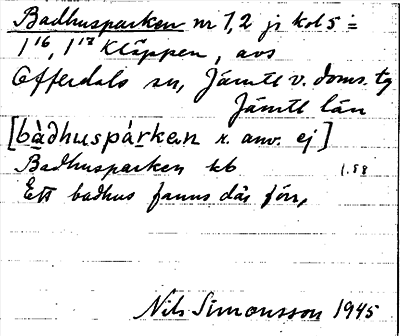 Badhusparken nr 1,2 js kol 5 =
1¹⁶, 1¹⁷ Kläppen, avs
Offerdals sn, Jämtl v. doms. tg
Jämtl län
[bàdhuspàrken r. anv. ej]
Badhusparken kb 1.58
Ett badhus fanns där förr,
Nils Simonsson 1945